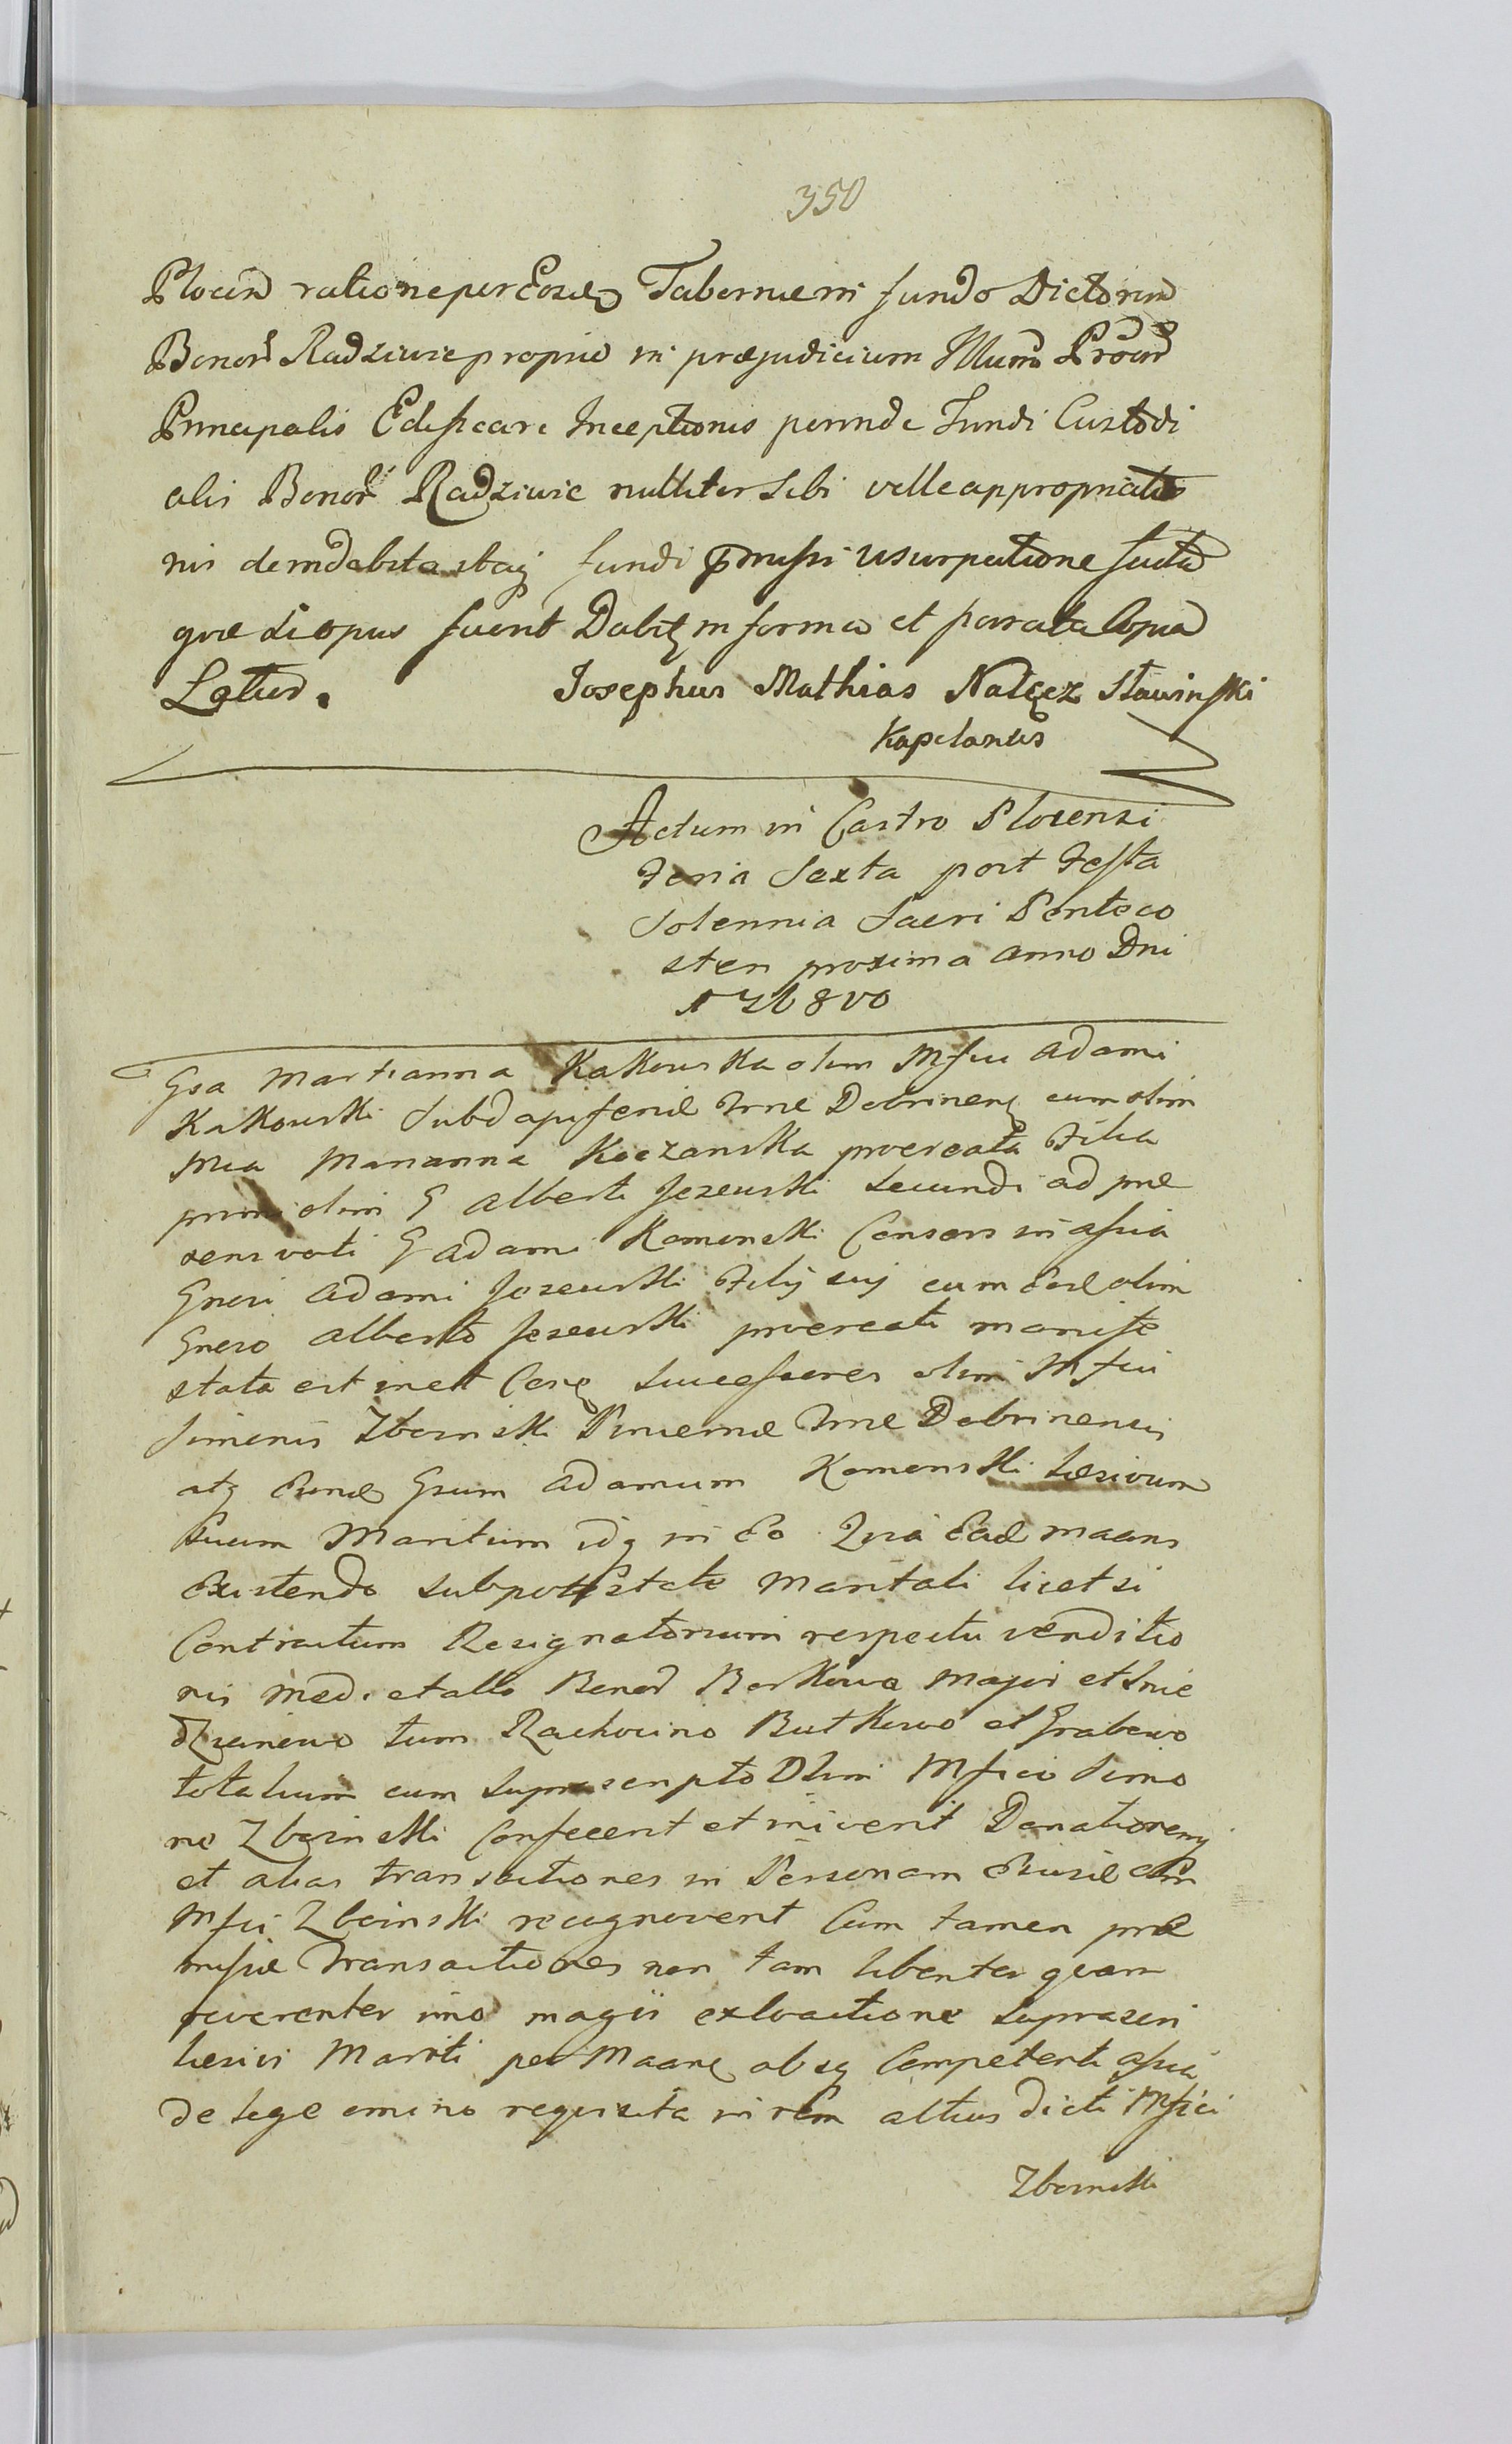 350
Plocen ratione per Eosdem Tabernæ in fundo Dictorum
Bonor Radziwie proprio in præjudicium Illum Procur
Principalis Edificari Inceptionis perinde Fundi Custodi
alis Bonor Radziwie nulliter sibi velle appropriatio
nis deindebita fundi præmissi usurpatione facta
quæ si opus fuerit Dabit in forma et parata Copia
Latur. Josephus Mathias Nałęcz Sławinski
Kapelanus
Actum in Castro Plocensi
Feria Sexta post Festa
Solennia Sacri Penteco
sten proxima anno Dni
1768vo
Gsa Martianna Kakowska olim Mfici Adami
Kakowski Subdapiferidæ Trræ Dobrinens cum olim
Mca Marianna Koczanska procreata Filia
primi olim G Alberti Jezewski secundi ad præ
sens voti G Adami Komenski Consors in assia
Gnosi Adami Jezewski Filij sui cum eod olim
Gneso Alberto Jezewski procreati manife
stata est in et Cong Successores olim Mfici
Simonis Zboinski Pincernæ Trræ Dobrinensis
atq Eund Gsum Adamum Komenski Læsivum
suum Maritum idq in Eo Quia Ead Maans
Existendo sub potestate Maritali licet si
Contractum Resignatorium respectu venditio
nis med etatto Bonor Borkowo Major et Snie
dzanowo tum Rachocino Rutkowo et Grabowo
totalium cum suprascripto Olim Mfico Simo
ne Zboinski Confecerit et iniverit Donationem
et alias transactiones in Personam Eiusd olim
Mfici Zboinski recognoverit Cum tamen præ
missæ Transactiones non tam libenter quam
reverenter imo magis extractione suprascri
læsivi Mariti per Maang absq Competenti assia
de lege omino requisita in rem altius dicti Mfici
Zboinski